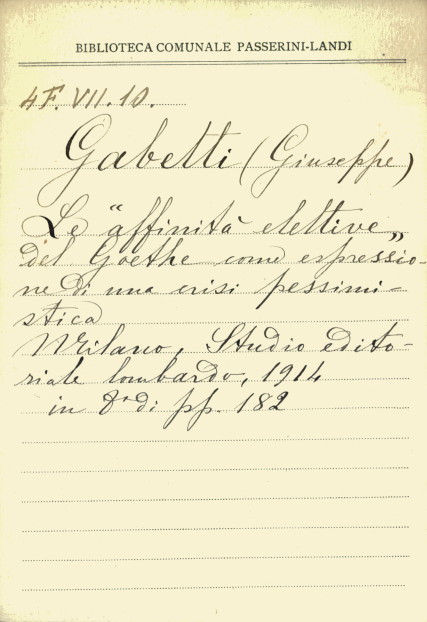 BIBLIOTECA COMUNALE PASSERINI-LANDI
4F. VII. 10.
Gabetti (Giuseppe)
Le "affinità elettive„
del Goethe come espressio-
ne di una crisi pessimi-
stica
Milano, Studio edito-
riale lombardo, 1914
in 8º di pp. 182